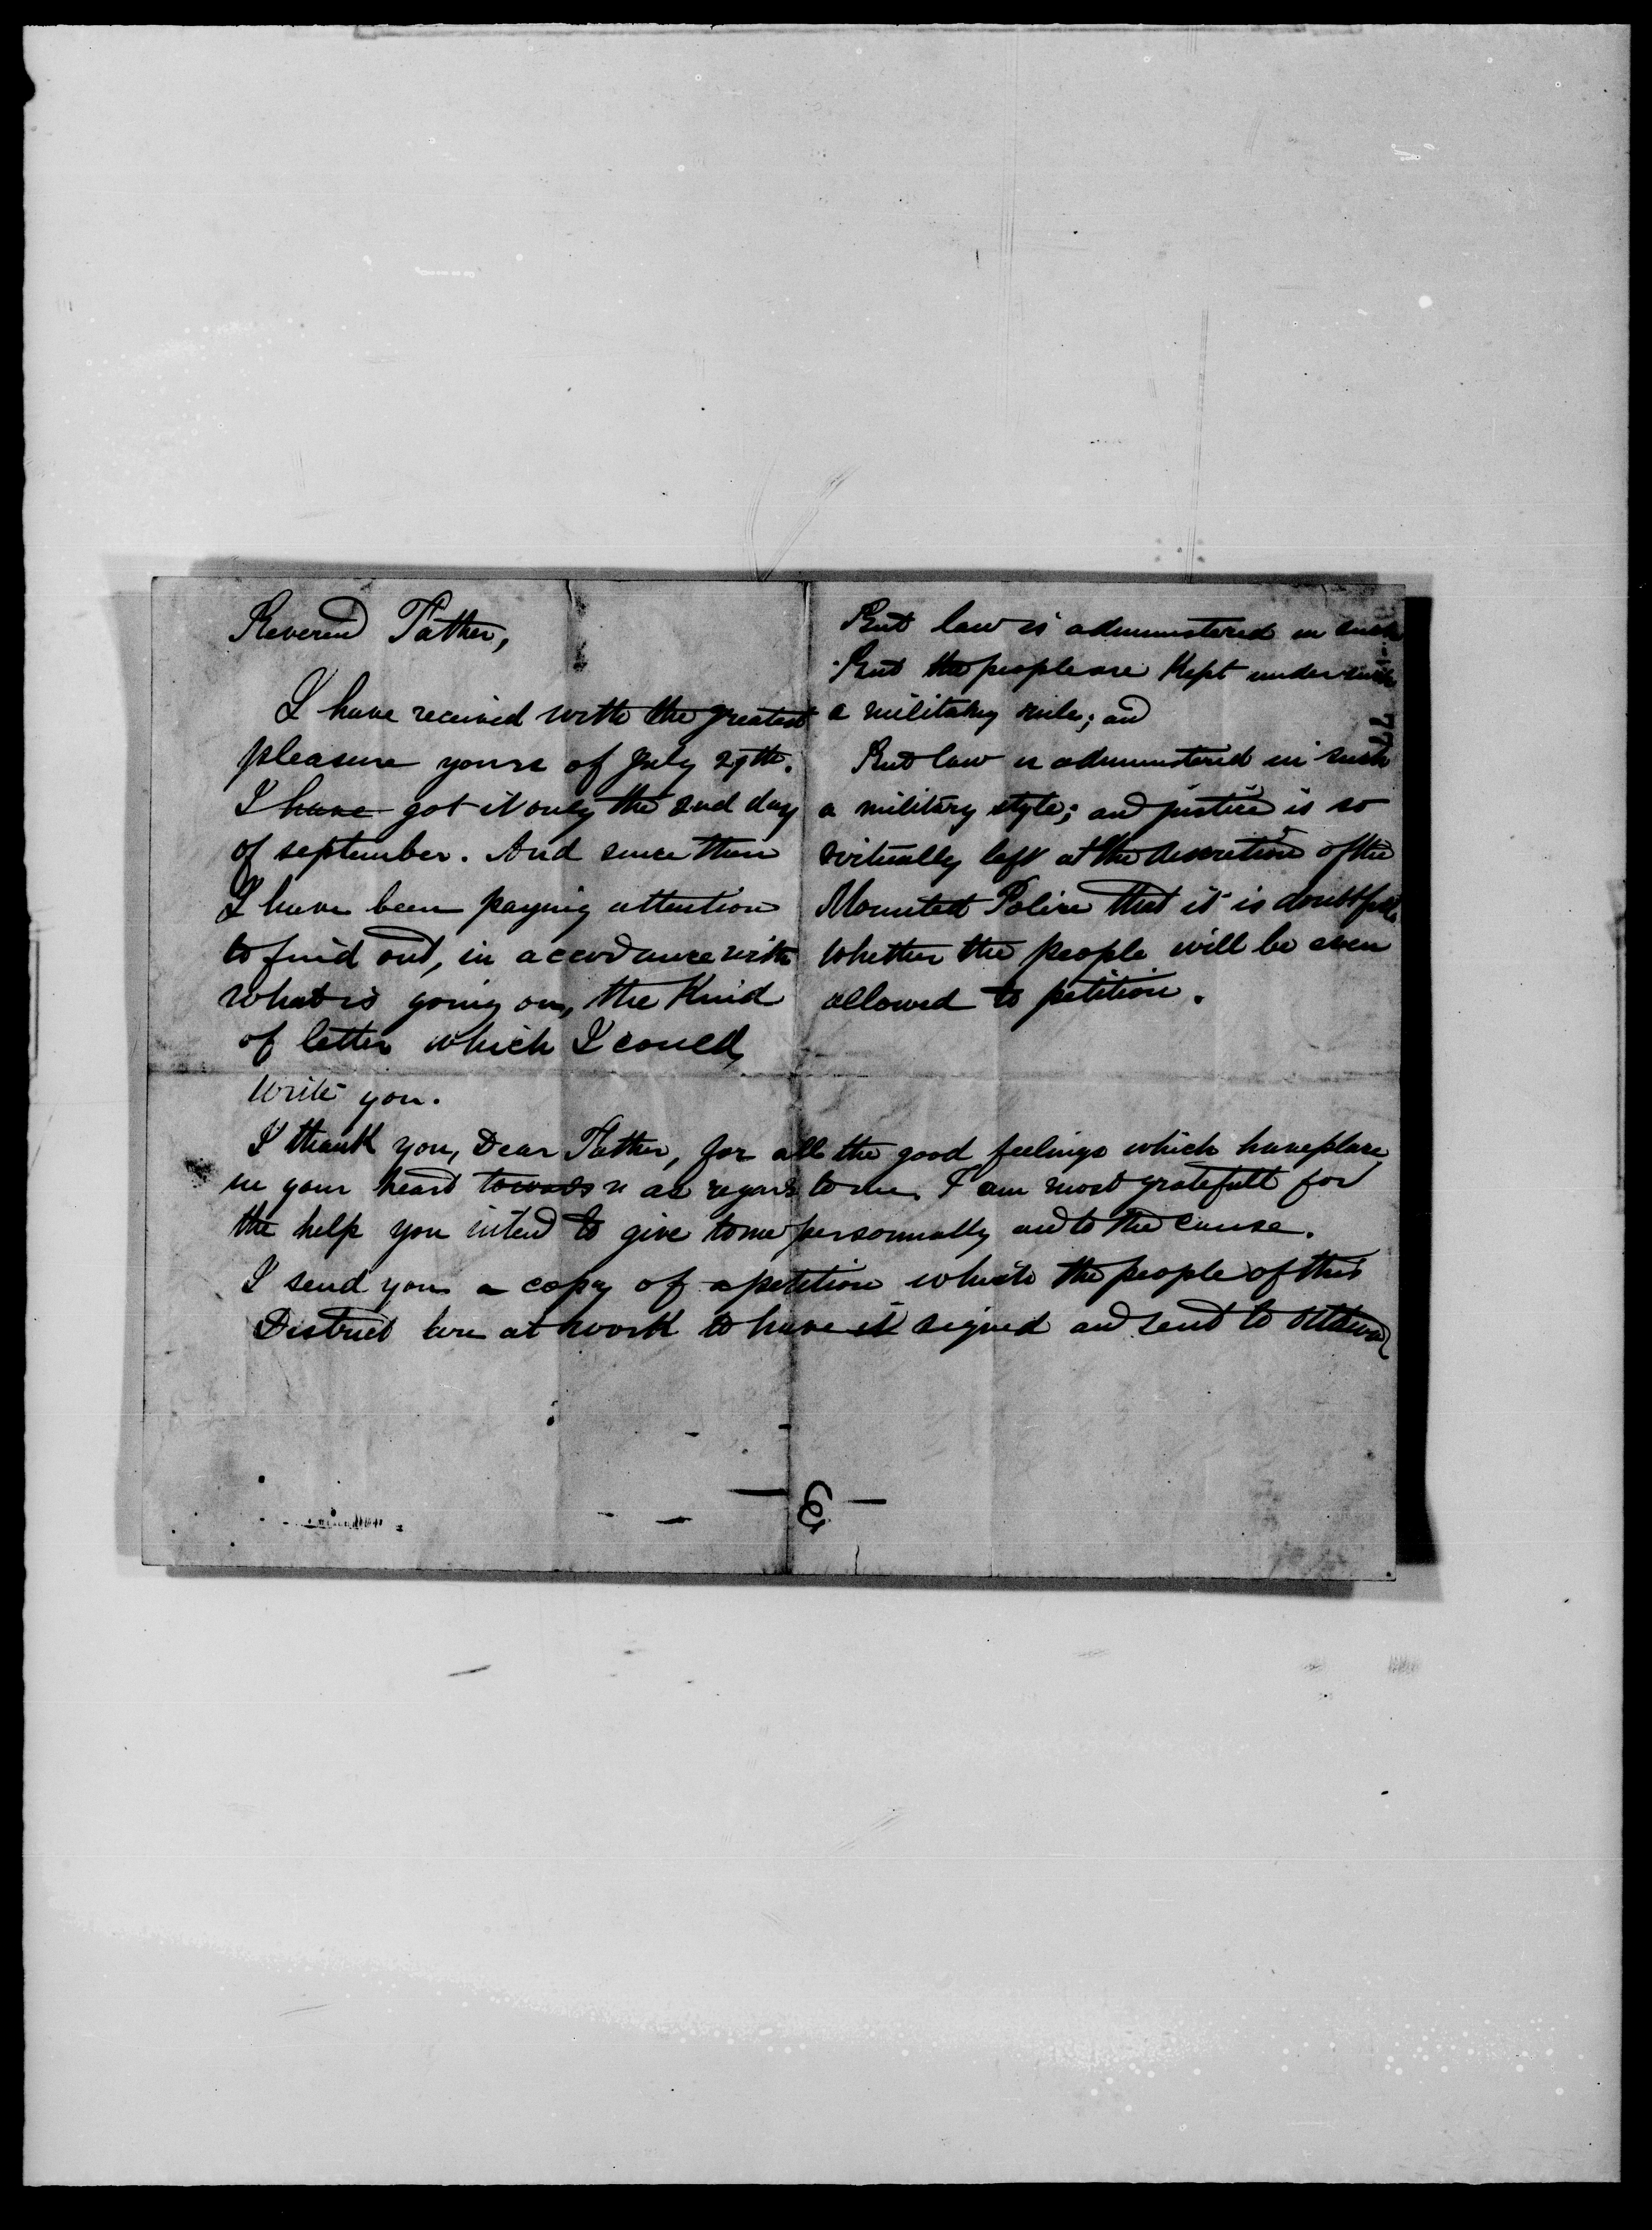 Reverend Father,
I have received with the greatest
pleasure yours of July 29th.
I have got it only the 2nd day
of september. And since then
I have been paying attention
to find out, in accordance with
what is going on, the Kind
of letter which I could
write you.
But law is administered in such
But the people are Kept under such
a military rule; and
But law is administered in such
a military style; and justice is so
virtually left at the discretion of the
Mounted Police that it is doubtfull
whether the people will be even
allowed to petition.
I thank you, Dear Father, for all the good feelings which have place
in your heart towards as regards to me. I am most gratefull for
the help you intend to give to me personnally and to the cause.
I send you a copy of a petition which the people of this
District are at work to have it signed and sent to Ottawa